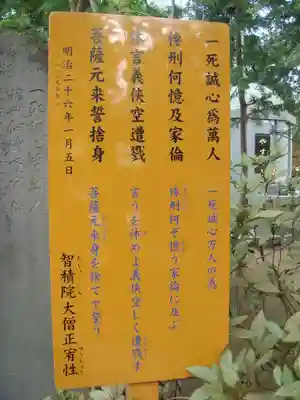 一死誠心為萬人
一死誠心万人の為
惨刑何憶及家倫
惨刑何ぞ憶う家倫に及ぶ
休言義侠空遭戮
言うを休めよ義侠空しく遭戮す
菩薩元来誓捨身
菩薩元来身を捨てて誓う
明治二十六年一月五日
智積院大僧正宥性